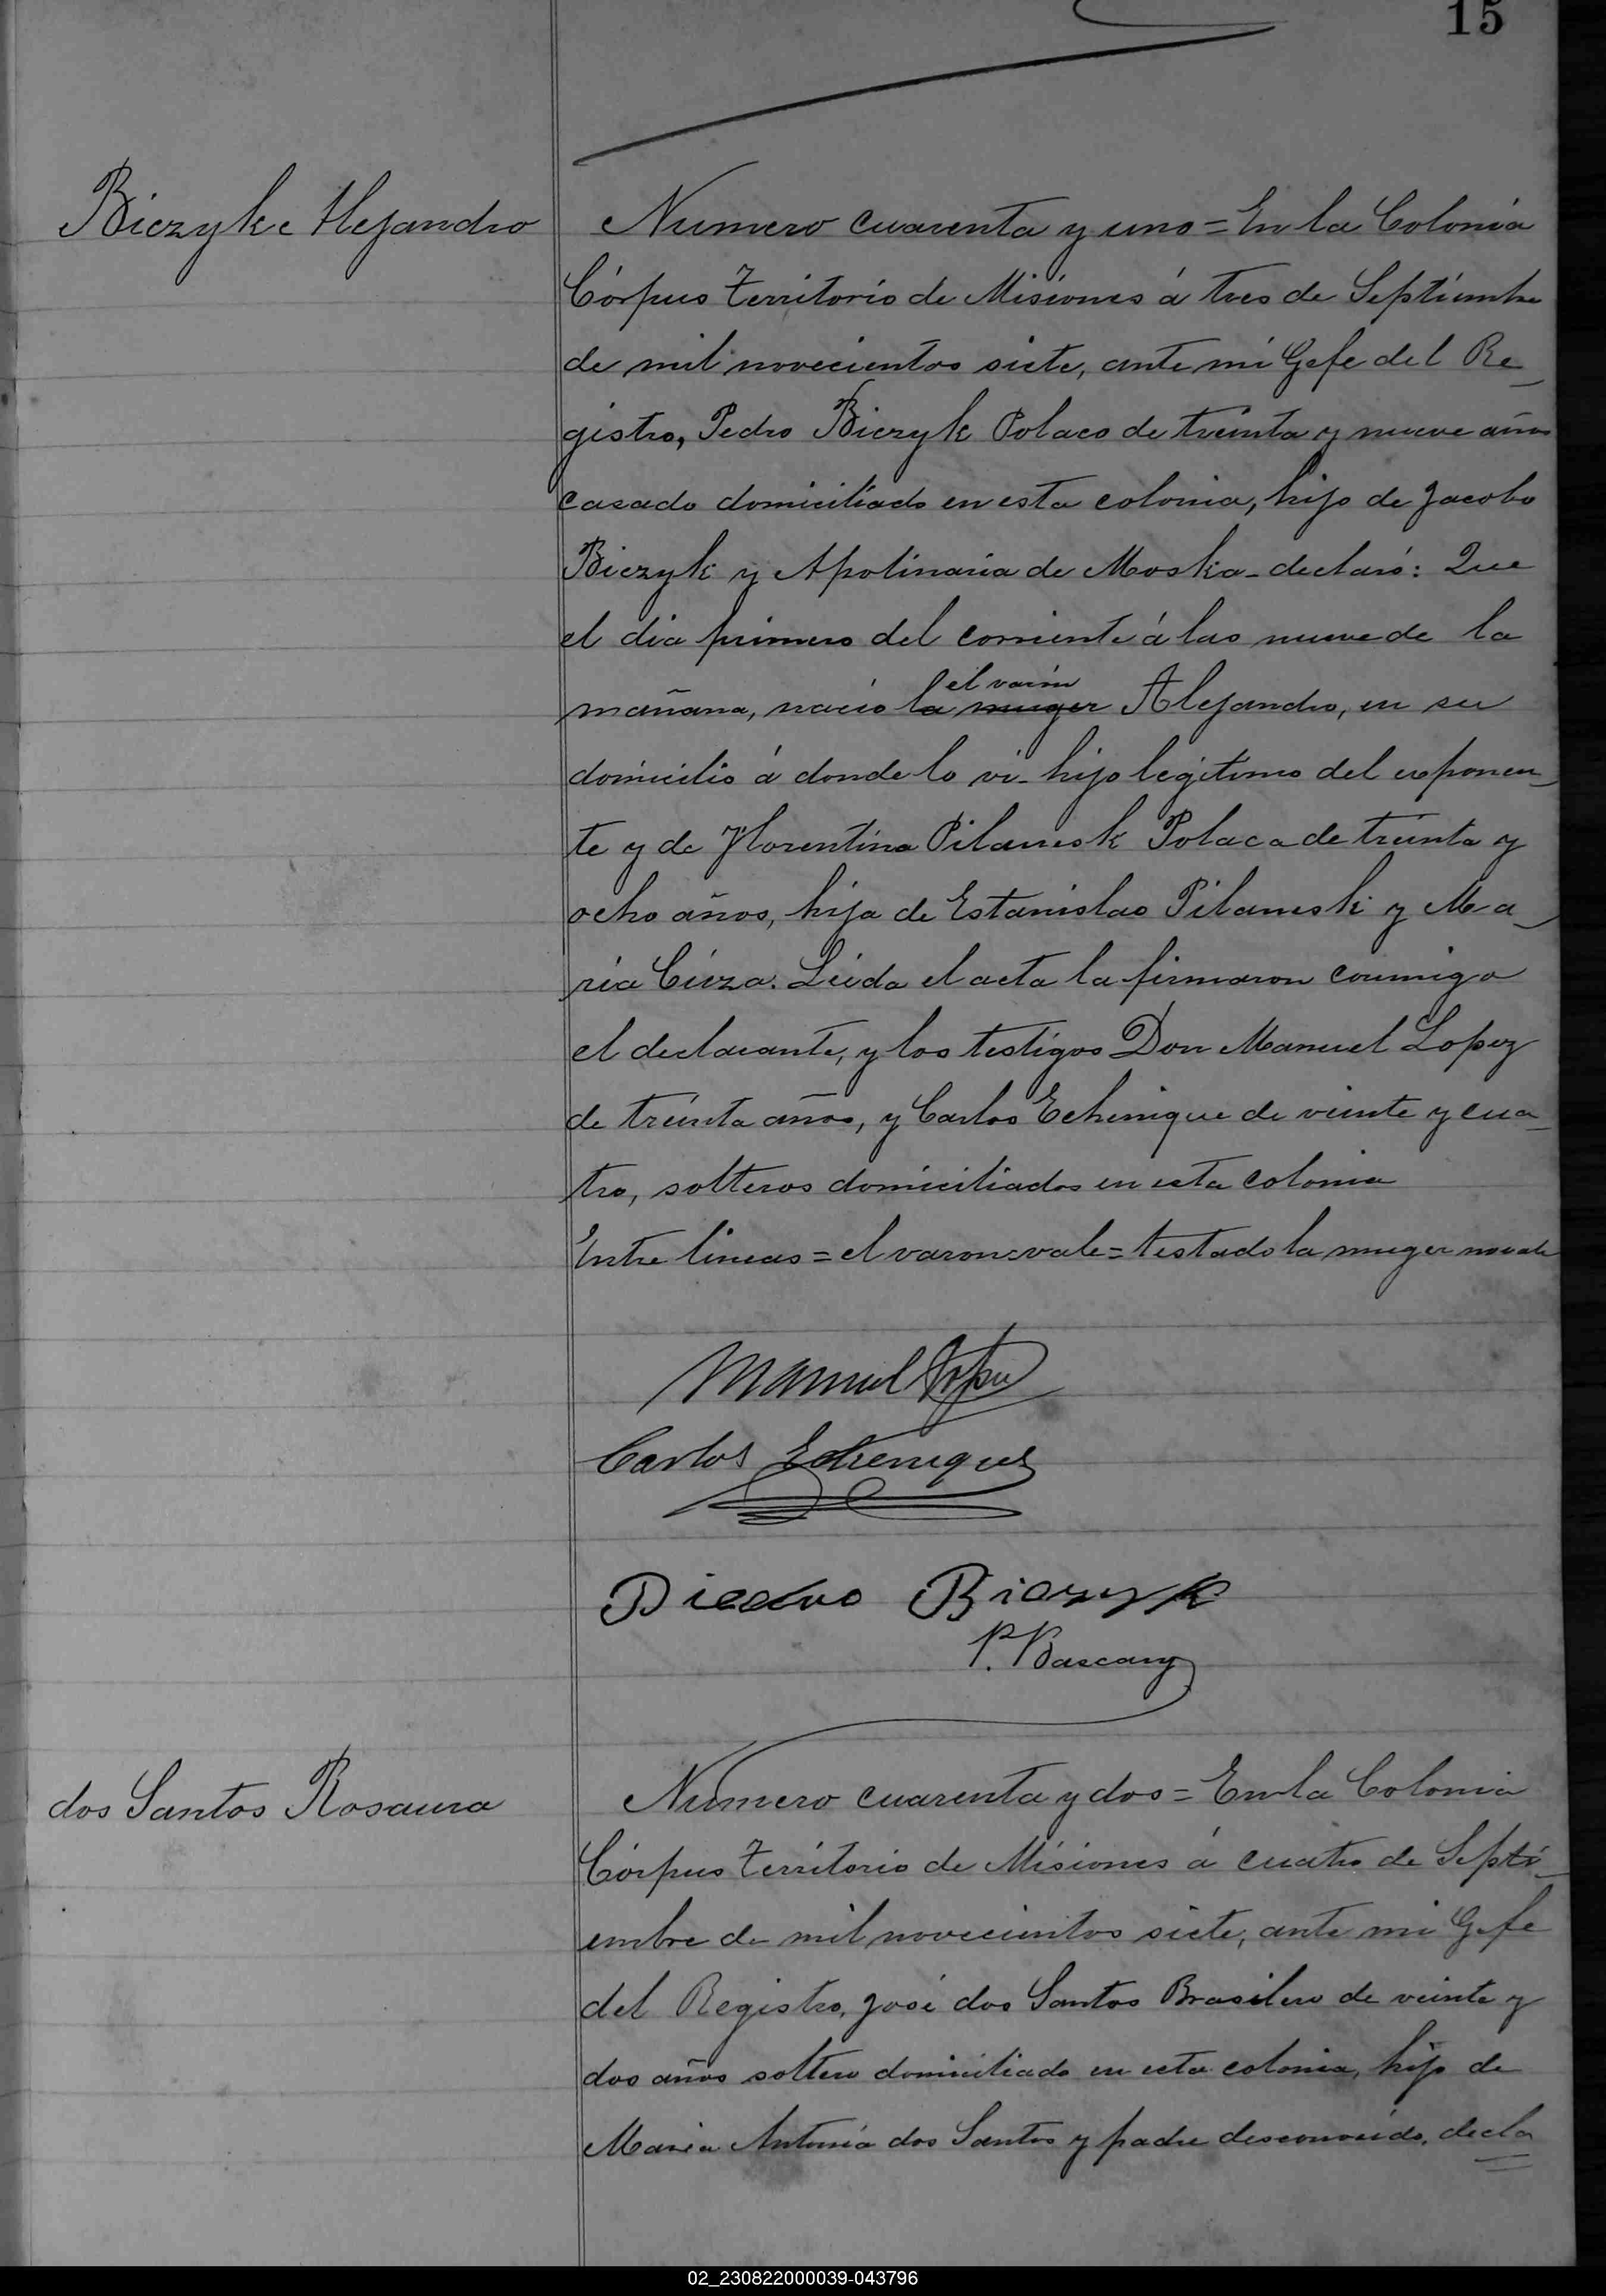 15
Biezyk Alejandro
Numero cuarenta y uno = En la Colonia
Córpus Territorio de Misiones á tres de Septiembre
de mil novecientos siete, ante mi Gefe del Re_
gistro, Pedro Biezyk Polaco de treinta y nueve años
casado domiciliado en esta colonia, hijo de Jacobo
Biezyk y Apolinaria de Moska - declaró: Que
el dia primero del corriente á las nueve de la
el varón
mañana, nació la muger Alejandro, en su
domicilio á donde lo vi - hijo legitimo del exponen_
te y de Florentina Pilanesk Polaca de treinta y
ocho años, hija de Estanislao Pilaneski y Ma_
ria Cieza. Leida el acta la firmaron conmigo
el declarante, y los testigos Don Manuel Lopez
de treinta años, y Carlos Echenique de veinte y cua_
tro, solteros domiciliados en esta colonia
Entre lineas = el varon = vale = testado la muger no vale
Manuel Lopez
Carlos Echenique
Piedro Biezyk
P. Bascary
dos Santos Rosaura
Numero cuarenta y dos = En la Colonia
Córpus Territorio de Misiones á cuatro de Septi_
embre de mil novecientos siete, ante mi Gefe
del Registro, José dos Santos Brasilero de veinte y
dos años soltero domiciliado en esta colonia, hijo de
Maria Antonia dos Santos y padre desconocido, decla
02_230822000039-043796